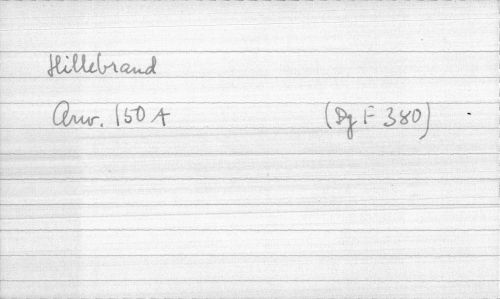 Hillebrand
Anv. 150 A (Dg F 380)